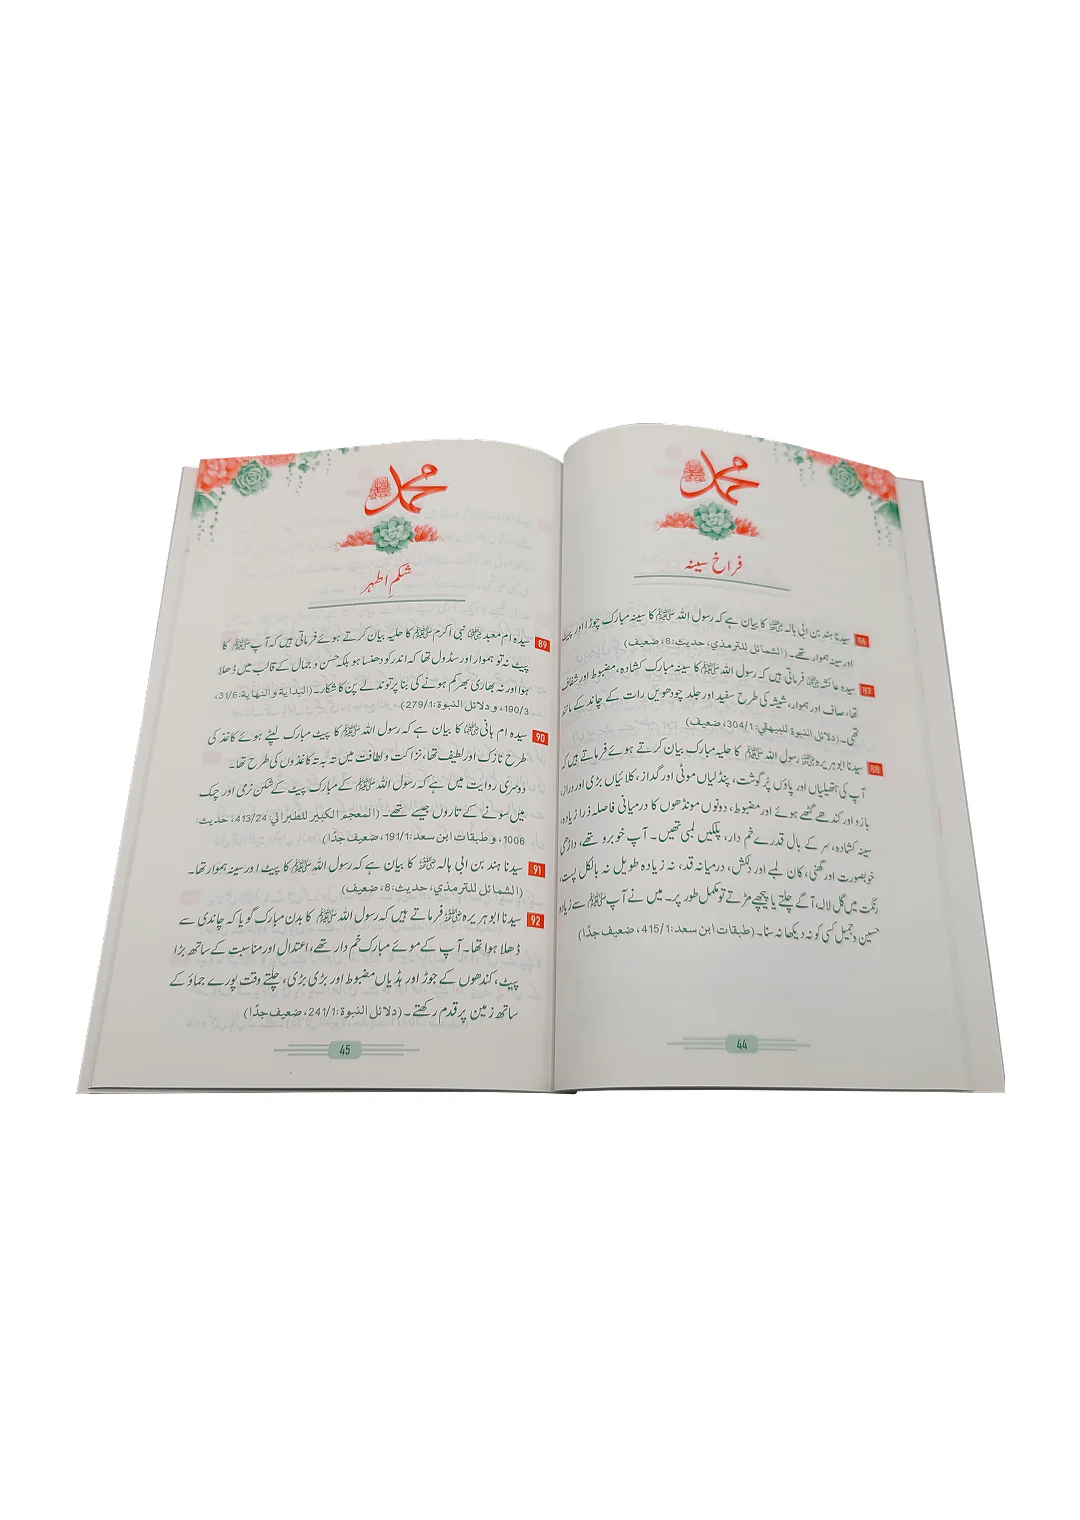 محمد ﷺ
فراخ سینہ
86 سیدنا ہند بن ابی ہالہ رضی اللہ عنہ کا بیان ہے کہ رسول اللہ ﷺ کا سینہ مبارک چوڑا اور پیٹ
اور سینہ ہموار تھے۔ (الشمائل للترمذي، حدیث:8، ضعیف)
87 سیدہ عائشہ رضی اللہ عنہا فرماتی ہیں کہ رسول اللہ ﷺ کا سینہ مبارک کشادہ، مضبوط اور شفاف
تھا، صاف اور ہموار، شیشہ کی طرح سفید اور جلد چودھویں رات کے چاند کے مانند
تھی۔ (دلائل النبوة للبیهقي: 304/1، ضعیف)
88 سیدنا ابو ہریرہ رضی اللہ عنہ رسول اللہ ﷺ کا حلیہ مبارک بیان کرتے ہوئے فرماتے ہیں کہ
آپ کی ہتھیلیاں اور پاؤں پُر گوشت، پنڈلیاں موٹی اور گداز، کلائیاں بڑی اور دراز،
بازو اور کندھے گٹھے ہوئے اور مضبوط، دونوں مونڈھوں کا درمیانی فاصلہ ذرا زیادہ،
سینہ کشادہ، سر کے بال قدرے خم دار، پلکیں لمبی تھیں۔ آپ خوبرو تھے، داڑھی
خوبصورت اور گھنی، کان لمبے اور دلکش، درمیانہ قد، نہ زیادہ طویل نہ بالکل پست،
رنگت میں گل لالہ، آگے چلتے یا پیچھے مڑتے تو مکمل طور پر۔ میں نے آپ ﷺ سے زیادہ
حسین و جمیل کسی کو نہ دیکھا نہ سنا۔ (طبقات ابن سعد: 415/1، ضعیف جدًا)
44
محمد ﷺ
شکمِ اطہر
89 سیدہ ام معبد رضی اللہ عنہا نبی اکرم ﷺ کا حلیہ بیان کرتے ہوئے فرماتی ہیں کہ آپ ﷺ کا
پیٹ نہ تو ہموار اور سڈول تھا کہ اندر کو دھنسا ہو بلکہ حسن و جمال کے قالب میں ڈھلا
ہوا اور نہ بھاری بھر کم ہونے کی بنا پر توندلے پن کا شکار۔ (البداية والنهاية: 31/6،
190/3، و دلائل النبوة: 279/1)
90 سیدہ ام ہانی رضی اللہ عنہا کا بیان ہے کہ رسول اللہ ﷺ کا پیٹ مبارک لپٹے ہوئے کاغذ کی
طرح نازک اور لطیف تھا، نزاکت و لطافت میں تہ بہ تہ کاغذوں کی طرح تھا۔
دوسری روایت میں ہے کہ رسول اللہ ﷺ کے مبارک پیٹ کے شکن نرمی اور چمک
میں سونے کے تاروں جیسے تھے۔ (المعجم الکبیر للطبراني: 413/24، حدیث:
1006، و طبقات ابن سعد: 191/1، ضعیف جدًا)
91 سیدنا ہند بن ابی ہالہ رضی اللہ عنہ کا بیان ہے کہ رسول اللہ ﷺ کا پیٹ اور سینہ ہموار تھا۔
(الشمائل للترمذي، حدیث: 8، ضعیف)
92 سیدنا ابو ہریرہ رضی اللہ عنہ فرماتے ہیں کہ رسول اللہ ﷺ کا بدن مبارک گویا کہ چاندی سے
ڈھلا ہوا تھا۔ آپ کے موئے مبارک خم دار تھے، اعتدال اور مناسبت کے ساتھ بڑا
پیٹ، کندھوں کے جوڑ اور ہڈیاں مضبوط اور بڑی بڑی، چلتے وقت پورے جماؤ کے
ساتھ زمین پر قدم رکھتے۔ (دلائل النبوة: 241/1، ضعیف جدًا)
45